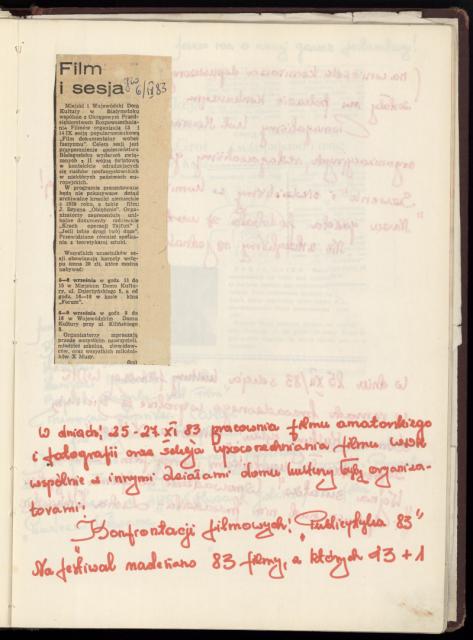 Film
i sesja
gw 6/IX 83
Miejski i Wojewódzki Dom
Kultury w Białymstoku
wspólnie z Okręgowym Przed-
siębiorstwem Rozpowszechnia-
nia Filmów organizują 13 i
14 IX sesję popularnonaukową
„Film dokumentalny wobec
faszyzmu". Celem sesji jest
przypomnienie społeczeństwu
Białegostoku wydarzeń zwią-
zanych z II wojną światową
w kontekście odradzających
się ruchów neofaszystowskich
w niektórych państwach eu-
ropejskich.
W programie prezentowane
będą nie pokazywane dotąd
archiwalne kroniki niemieckie
z 1939 roku, a także filmy
J. Bryana „Oblężenie". Orga-
nizatorzy zaprezentują uni-
kalne dokumenty radzieckie
„Krach operacji Tajfun" i
„Jeśli tobie drogi twój dom".
Przewidziane również spotka-
nia z teoretykami sztuki.
Wszystkich uczestników se-
sji obowiązują karnety wstę-
pu (cena 20 zł), które można
nabywać:
5—8 września w godz 11 do
15 w Miejskim Domu Kultu-
ry, ul. Dzierżyńskiego 5, a od
godz. 16—19 w kasie kina
„Forum".
5—9 września w godz 8 do
18 w Wojewódzkim Domu
Kultury przy ul. Kilińskiego
8.
Organizatorzy zapraszają
przede wszystkim nauczycieli,
młodzież szkolną, zbowidow-
ców, oraz wszystkich miłośni-
ków X Muzy.
W dniach 25-27 XI 83 pracownia filmu amatorskiego
i fotografii oraz sekcja upowszechniania filmu WDK
wspólnie z innymi działami domu kultury były organiza-
torami:
Konfrontacji filmowych: "Publicystyka 83"
Na festiwal nadesłano 83 filmy, z których 13 + 1